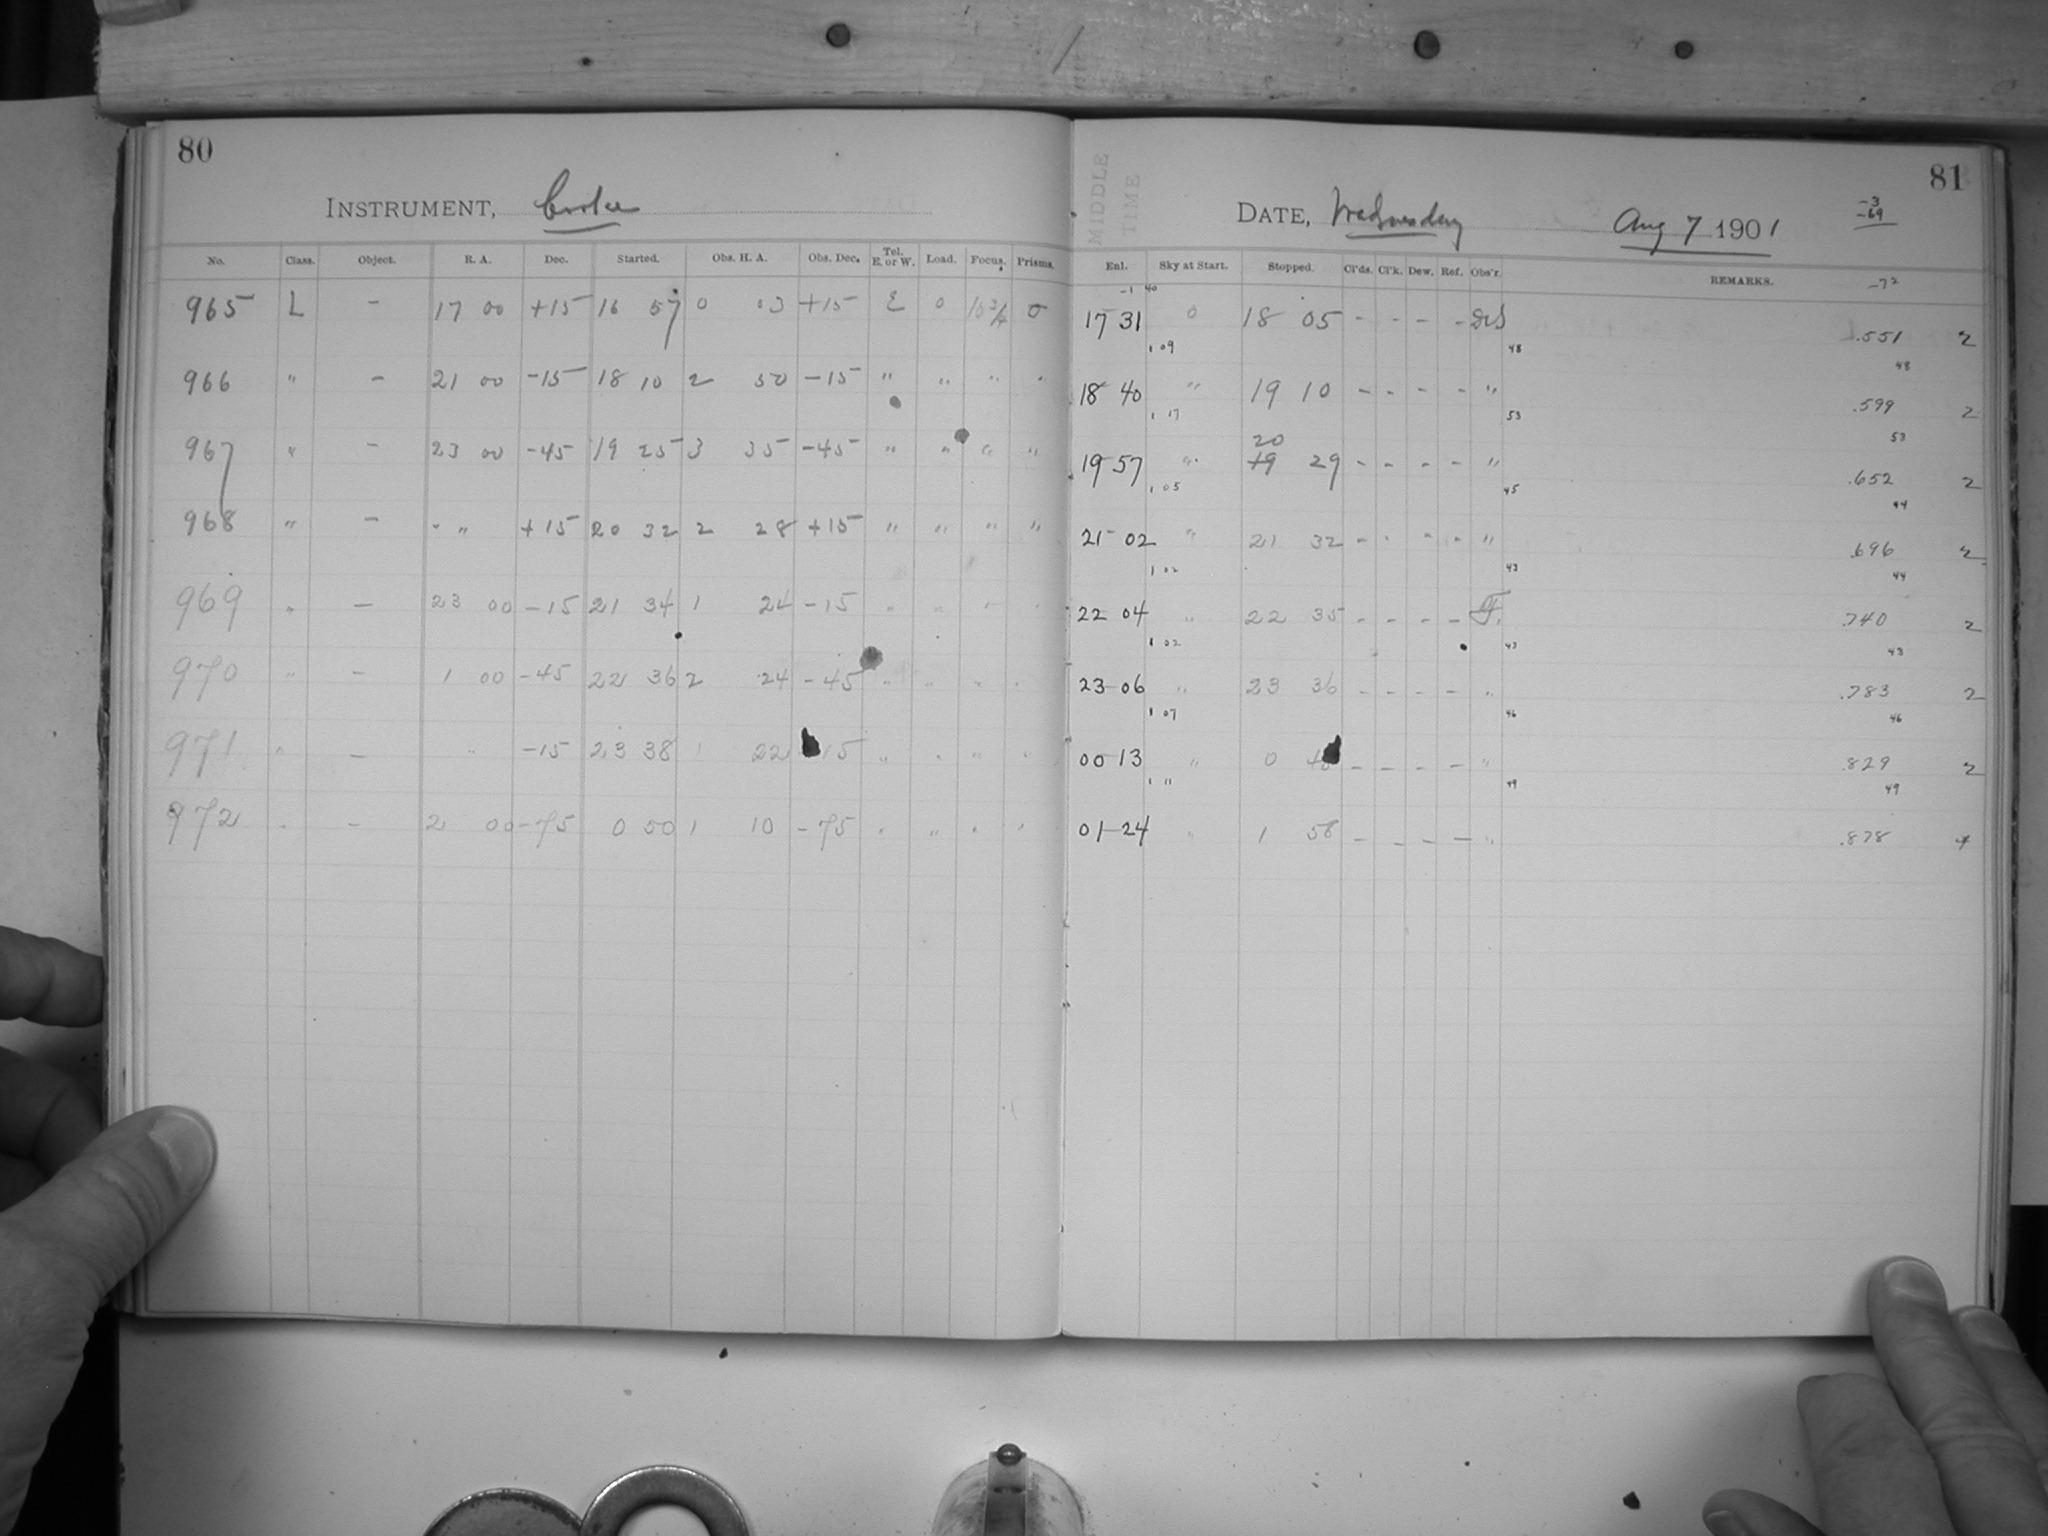 80
INSTRUMENT, Cooke
No. Class. Object. R. A. Dec. Started. Obs. H. A. Obs. Dec. Tel. E. or W. Load. Focus. Prisms.
965 L - 17 00 +15 16 57 0 03 +15 E 0 10 3/4 0
966 " - 21 00 -15 18 10 2 50 -15 " " " "
967 " - 23 00 -45 19 25 3 35 -45 " " " "
968 " - " " +15 20 32 2 28 +15 " " " "
969 " - 23 00 -15 21 34 1 24 -15 " " " "
970 " - 1 00 -45 22 36 2 24 -45 " " " "
971 " - " -15 23 38 1 22 15 " " " "
972 " - 2 00 -75 0 50 1 10 -75 " " " "
MIDDLE
TIME
81
DATE, Wednesday Aug 7 1901
-3
-69
Enl. Sky at Start. Stopped. Cl'ds. Cl'k. Dew. Ref. Obs'r. REMARKS.
-1 40 -72
17 31 0 18 05 - - - - .551 2
1 09 48 48
18 40 " 19 10 - - - - " .599 2
1 17 53 53
20
19 57 " 19 29 - - - - " .652 2
1 05 45 44
21 02 " 21 32 - - - - " .696 2
1 02 43 44
22 04 " 22 35 - - - - F. .740 2
1 02 43 43
23 06 " 23 36 - - - - " .783 2
1 07 46 46
00 13 " 0 - - - - " .829 2
1 11 49 49
01 24 " 1 58 - - - - " .878